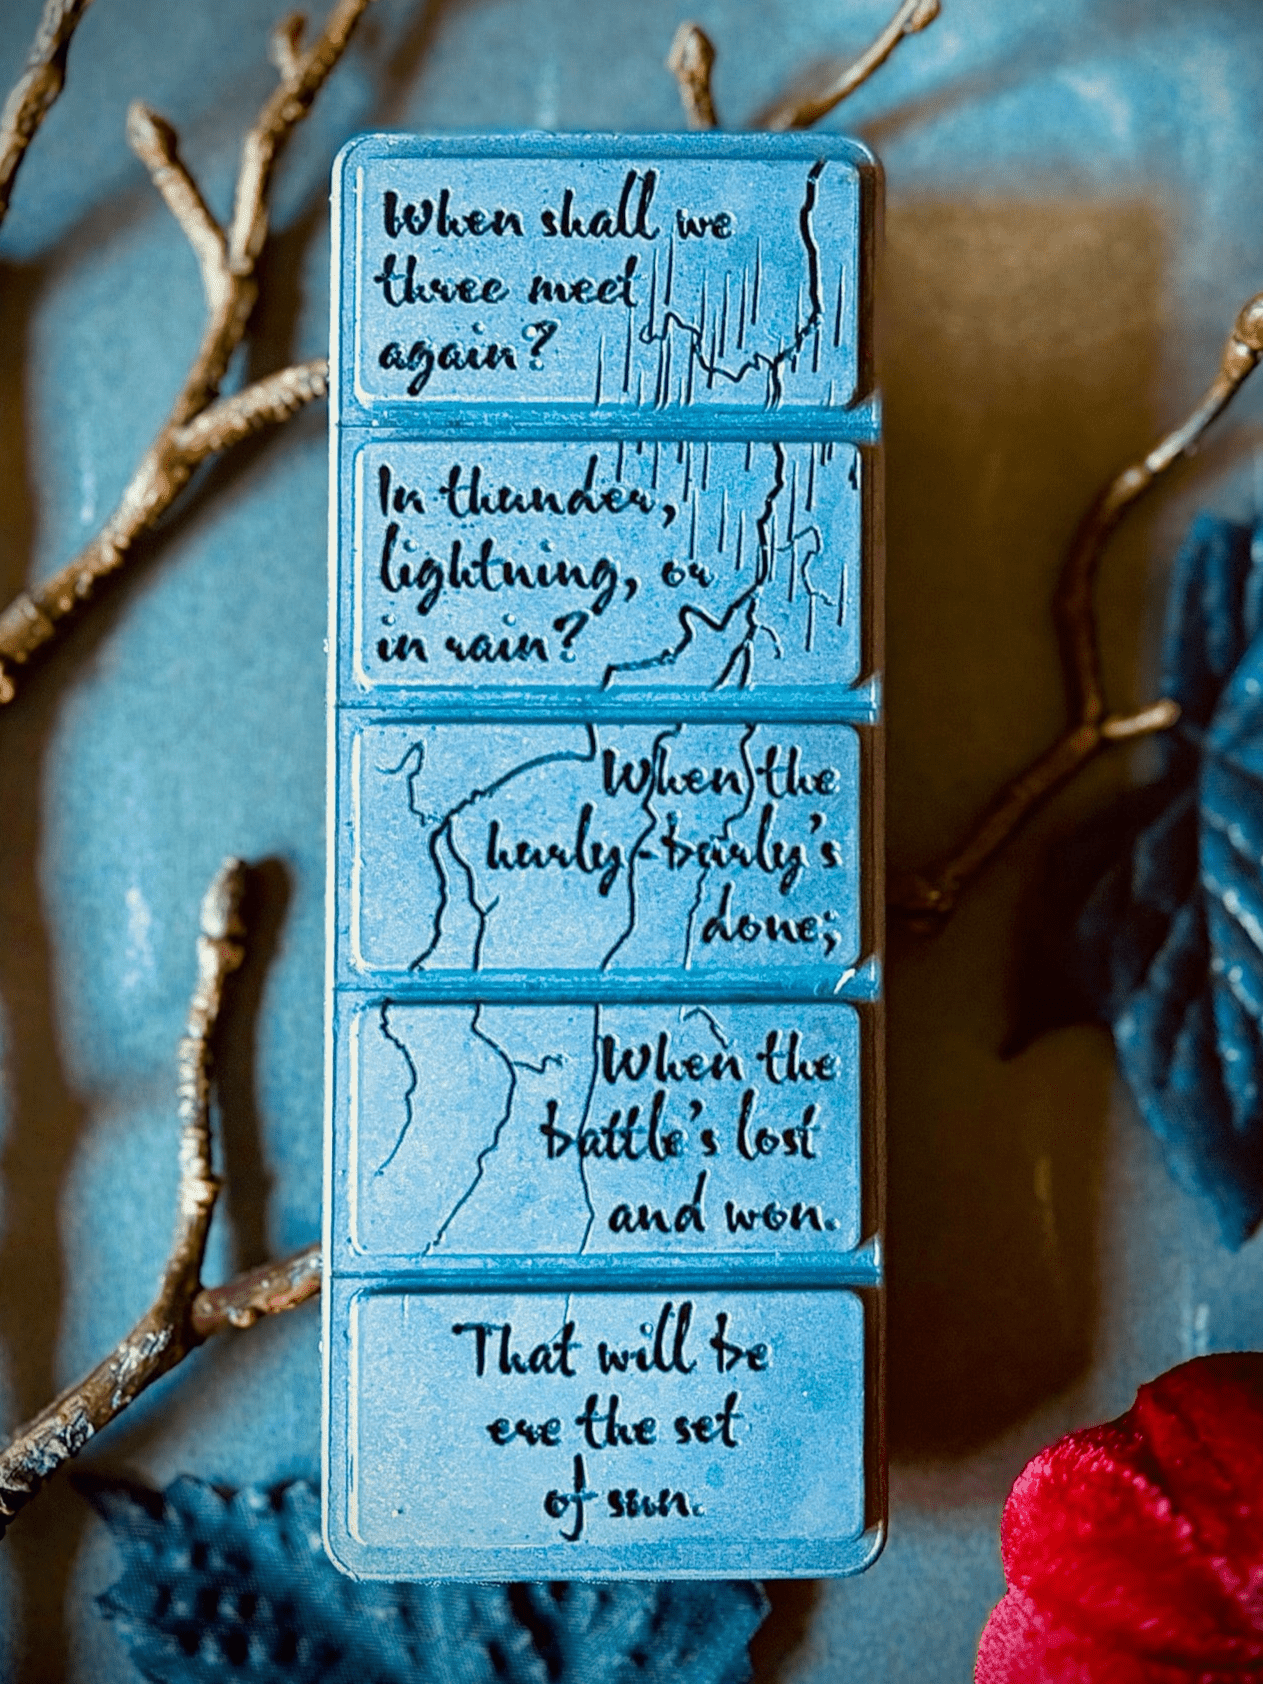 When shall we
three meet
again?
In thunder,
lightning, or
in rain?
When the
hurly-burly's
done;
When the
battle's lost
and won.
That will be
ere the set
of sun.